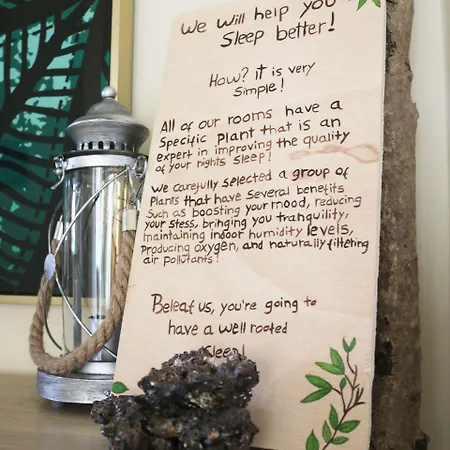 We will help you
Sleep better!
How? it is very
Simple!
All of our rooms have a
Specific Plant that is an
expert in improving the quality
of your nights Sleep!
We carefully selected a group of
Plants that have several benefits
Such as boosting your mood, reducing
your stess, bringing you tranquility,
maintaining indoor humidity levels,
Producing oxygen, and naturally filteting
air pollutants!
Beleaf us, you're going to
have a well rooted
Sleep!